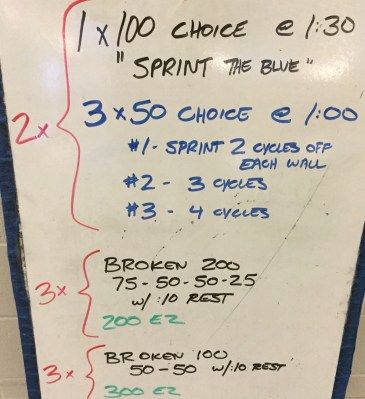 2x
1 x 100 CHOICE @ 1:30
"SPRINT THE BLUE"
3 x 50 CHOICE @ 1:00
#1 - SPRINT 2 CYCLES OFF
EACH WALL
#2 - 3 CYCLES
#3 - 4 CYCLES
3x
BROKEN 200
75-50-50-25
w/ :10 REST
200 EZ
3x
BROKEN 100
50-50 w/ :10 REST
300 EZ